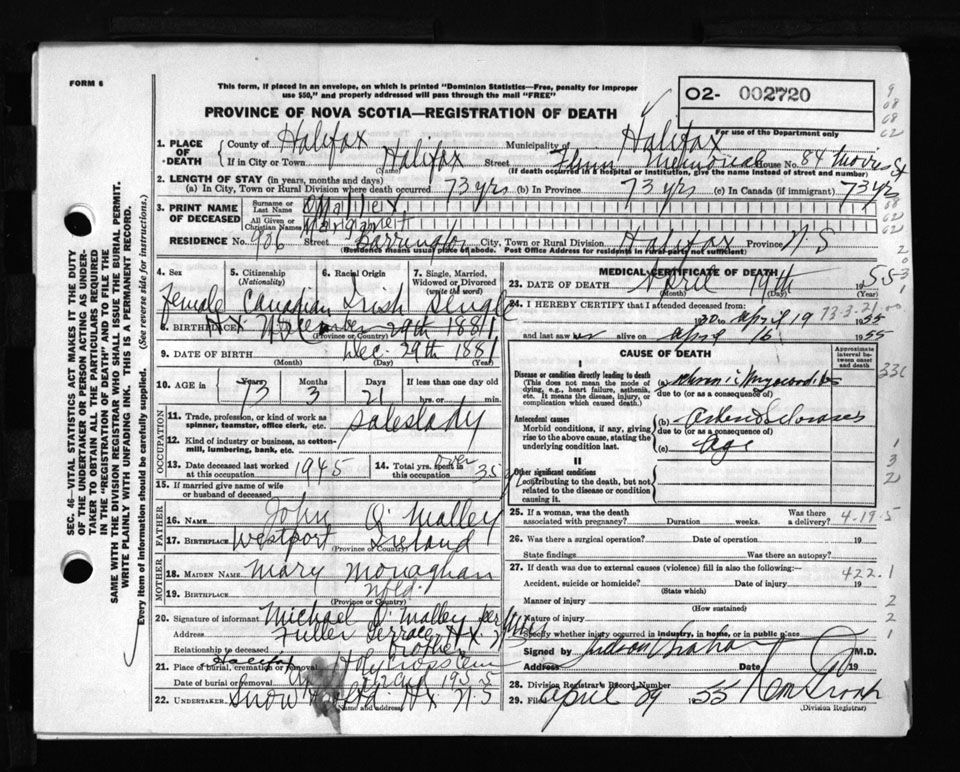 FORM 6
This form, if placed in an envelope, on which is printed "Dominion Statistics—Free, penalty for improper
use $50," and properly addressed will pass through the mail "FREE"
O2- 002720
For use of the Department only
PROVINCE OF NOVA SCOTIA—REGISTRATION OF DEATH
1. PLACE OF DEATH
County of Halifax Municipality of Halifax
If in City or Town Halifax Street Memorial House No. 84 Morris St
(Name) (If death occurred in a hospital or institution, give the name instead of street and number)
2. LENGTH OF STAY (in years, months and days)
(a) In City, Town or Rural Division where death occurred 73 yrs (b) In Province 73 yrs (c) In Canada (if immigrant) 73 yrs
3. PRINT NAME OF DECEASED
Surname or Last Name O'Malley
All Given or Christian Names Margaret
RESIDENCE No. 906 Street Barrington City, Town or Rural Division Halifax Province N.S
(Residence means usual place of abode. Post Office Address for residents in rural parts not sufficient)
4. Sex 5. Citizenship (Nationality) 6. Racial Origin 7. Single, Married, Widowed or Divorced (write the word)
Female Canadian Irish Single
8. BIRTHPLACE Hx N.S. December 29th 1881
(Province or Country)
9. DATE OF BIRTH Dec. 29th 1881
(Month) (Day) (Year)
10. AGE in Years Months Days If less than one day old
73 3 21 hrs. or min.
OCCUPATION
11. Trade, profession, or kind of work as
spinner, teamster, office clerk, etc. saleslady
12. Kind of industry or business, as cotton-
mill, lumbering, bank, etc.
13. Date deceased last worked
at this occupation 1945
14. Total yrs. spent in
this occupation over 35
15. If married give name of wife
or husband of deceased
FATHER
16. NAME John O'Malley
17. BIRTHPLACE Westport Ireland
(Province or Country)
MOTHER
18. MAIDEN NAME Mary Monaghan
19. BIRTHPLACE Nfld.
(Province or Country)
20. Signature of informant Michael O'Malley
Address Fuller Terrace Hx. N.S
Relationship to deceased brother
21. Place of burial, cremation or removal Halifax Holy Cross Cem
Date of burial or removal April 22nd 1955
22. UNDERTAKER Snow & Co Ltd. Hx N.S
(Name and address)
MEDICAL CERTIFICATE OF DEATH
23. DATE OF DEATH April 19th 1955
(Month) (Day) (Year)
24. I HEREBY CERTIFY that I attended deceased from:
1930 to April 19 1955
73-3-21
and last saw her alive on April 16 1955
CAUSE OF DEATH
Approximate interval between onset and death
I
Disease or condition directly leading to death
(This does not mean the mode of
dying, e.g., heart failure, asthenia,
etc. It means the disease, injury, or
complication which caused death.)
(a) chronic Myocarditis
due to (or as a consequence of)
Antecedent causes
Morbid conditions, if any, giving
rise to the above cause, stating the
underlying condition last.
(b) Arteriosclerosis
due to (or as a consequence of)
(c) Age
II
Other significant conditions
contributing to the death, but not
related to the disease or condition
causing it.
25. If a woman, was the death
associated with pregnancy? Duration weeks. Was there
a delivery? 4-19-5
26. Was there a surgical operation? Date of operation 19
State findings Was there an autopsy?
27. If death was due to external causes (violence) fill in also the following:—
Accident, suicide or homicide? Date of injury 19
(State which)
422.1
Manner of injury
(How sustained)
Nature of injury
Specify whether injury occurred in industry, in home, or in public place
Signed by Judson Graham M.D.
Address Date 19
28. Division Registrar's Record Number
29. Filed April 29 1955
(Division Registrar)
SEC. 46—VITAL STATISTICS ACT MAKES IT THE DUTY
OF THE UNDERTAKER OR PERSON ACTING AS UNDER-
TAKER TO OBTAIN ALL THE PARTICULARS REQUIRED
IN THE "REGISTRATION OF DEATH" AND TO FILE THE
SAME WITH THE DIVISION REGISTRAR WHO SHALL ISSUE THE BURIAL PERMIT.
WRITE PLAINLY WITH UNFADING INK. THIS IS A PERMANENT RECORD.
Every item of information should be carefully supplied. (See reverse side for instructions.)